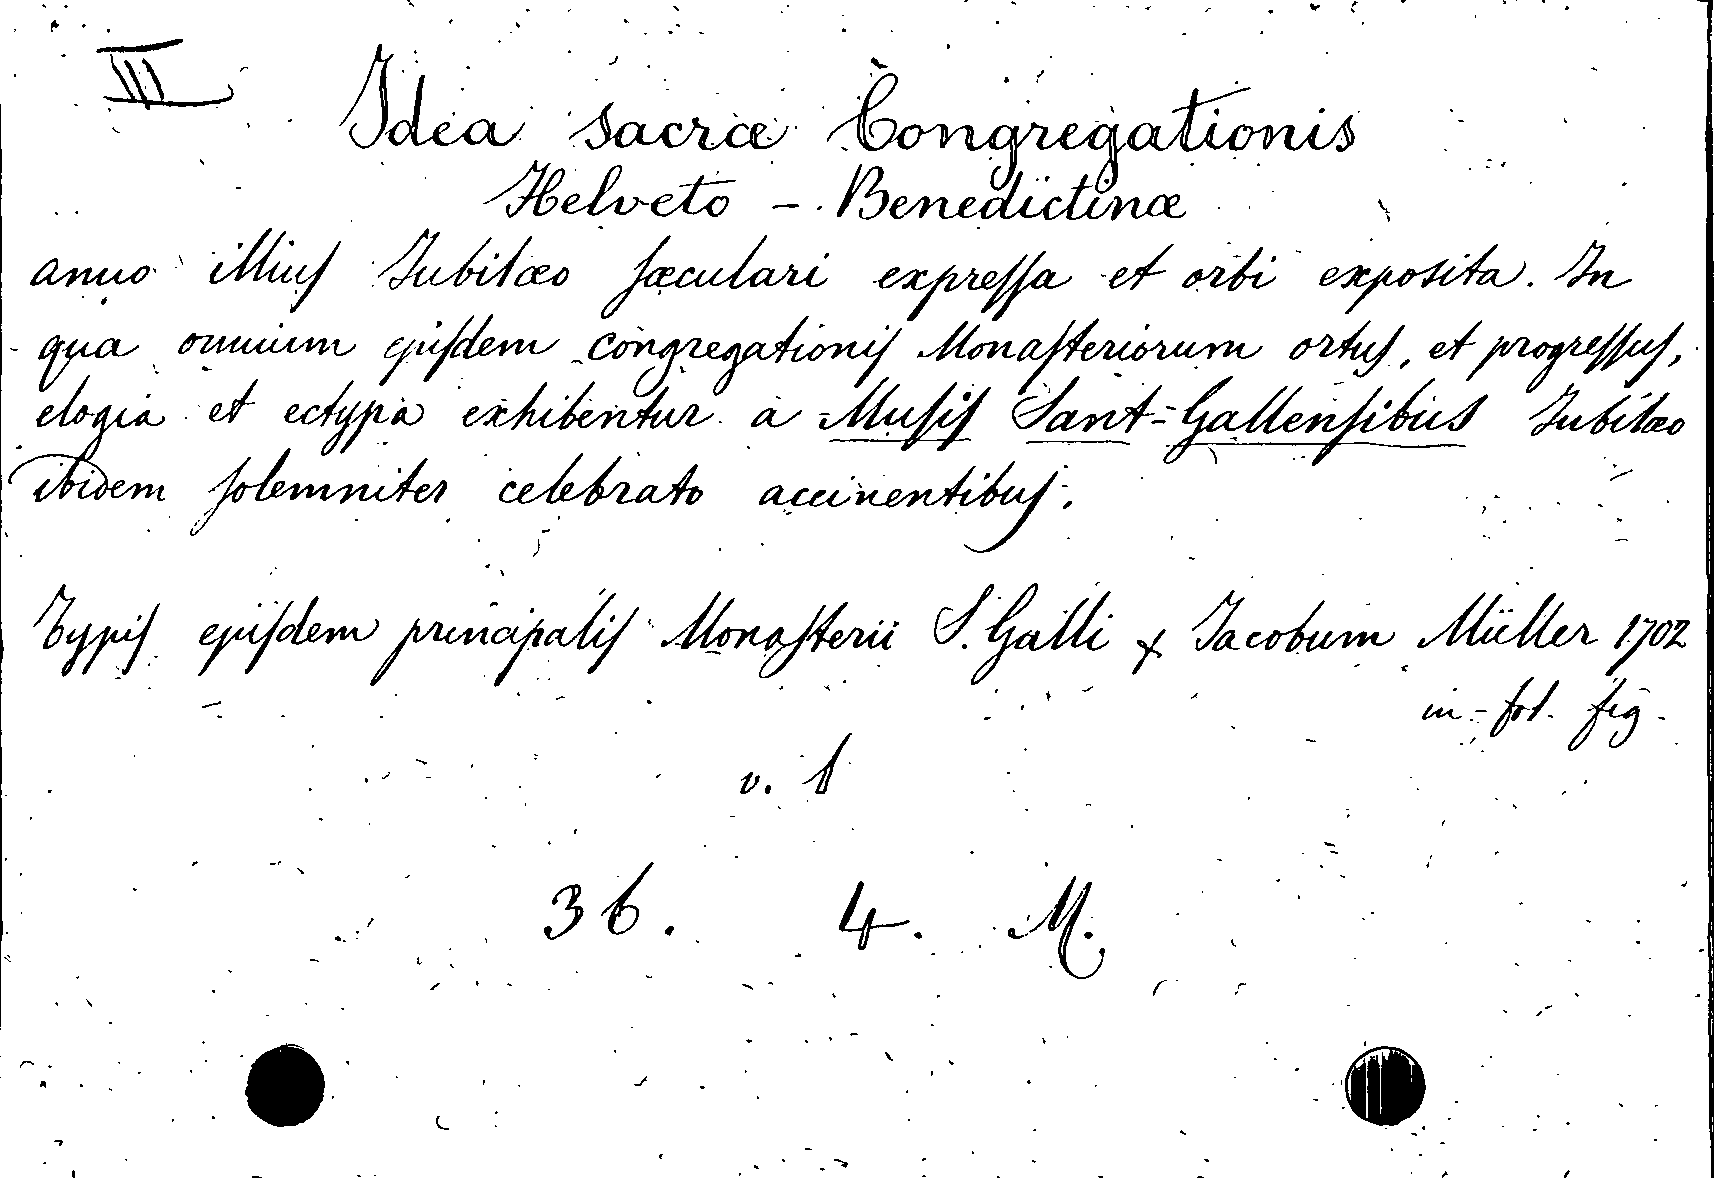 III
Idea sacræ Congregationis
Helveto - Benedictinæ
anno illiuſ Jubilæo ſæculari expreſſa et orbi exposita. In
qua omnium ejuſdem congregationiſ Monaſteriorum ortuſ, et progreſſuſ,
elogia et ectypa exhibentur a Muſiſ Sant-Gallenſibus Jubilæo
ibidem ſolemniter celebrato accinentibuſ.
Typiſ ejuſdem principaliſ Monaſterii S. Galli & Jacobum Müller 1702
in-fol. fig.
v. 1
36. 4. M.